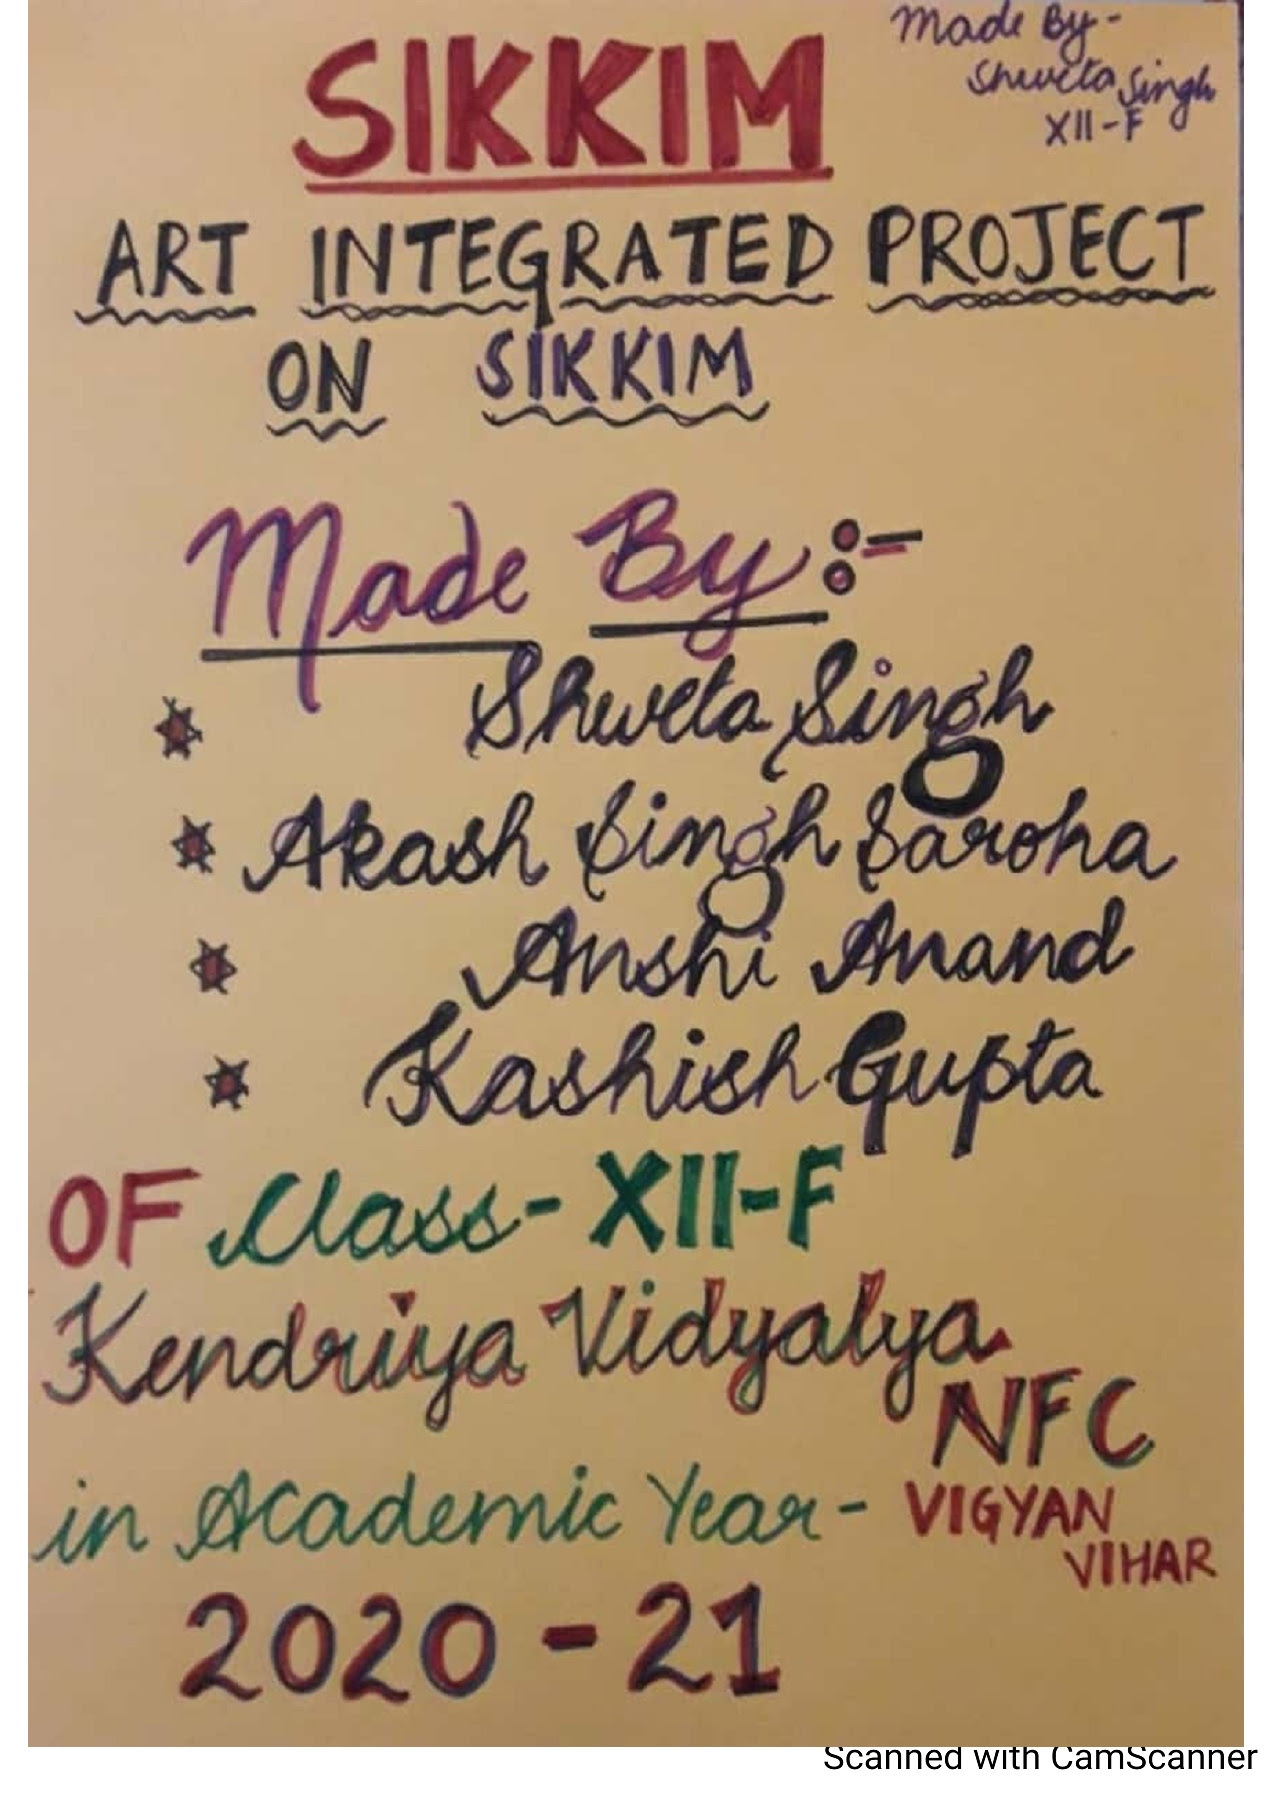 Made By-
Shweta Singh
XII-F
SIKKIM
ART INTEGRATED PROJECT
ON SIKKIM
Made By:-
Shweta Singh
Akash Singh Saroha
Anshi Anand
Kashish Gupta
OF Class- XII-F
Kendriya Vidyalya
NFC
VIGYAN
VIHAR
in Academic Year-
2020-21
Scanned with CamScanner